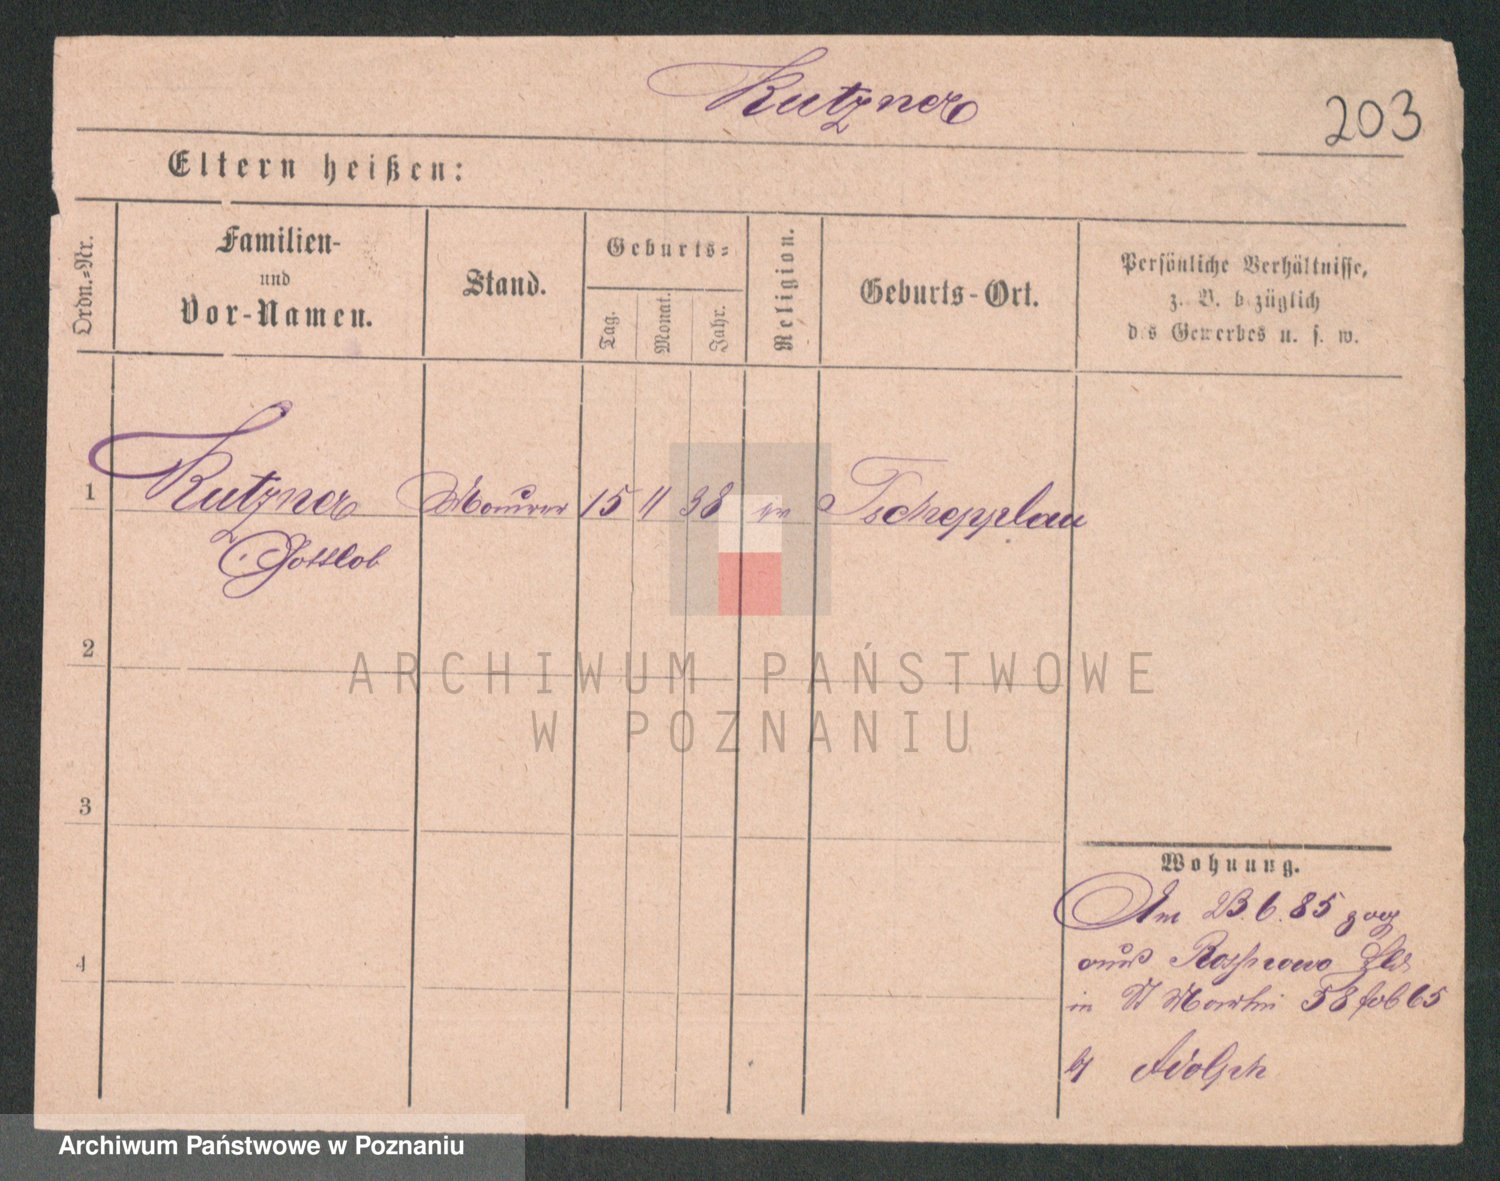 Kutzner
203
Eltern heißen:
Ordn.-Nr.
Familien-
und
Vor-Namen.
Stand.
Geburts-
Tag.
Monat.
Jahr.
Religion.
Geburts-Ort.
Persönliche Verhältnisse,
z. B. bezüglich
des Gewerbes u. s. w.
1 Kutzner Maurer 15 11 38 ev Tschepplau
Gottlob
2
3
4
Wohnung.
Am 23.6.85 zog
aus
in St Martin 58
Adolph
ARCHIWUM PAŃSTWOWE
W POZNANIU
Archiwum Państwowe w Poznaniu